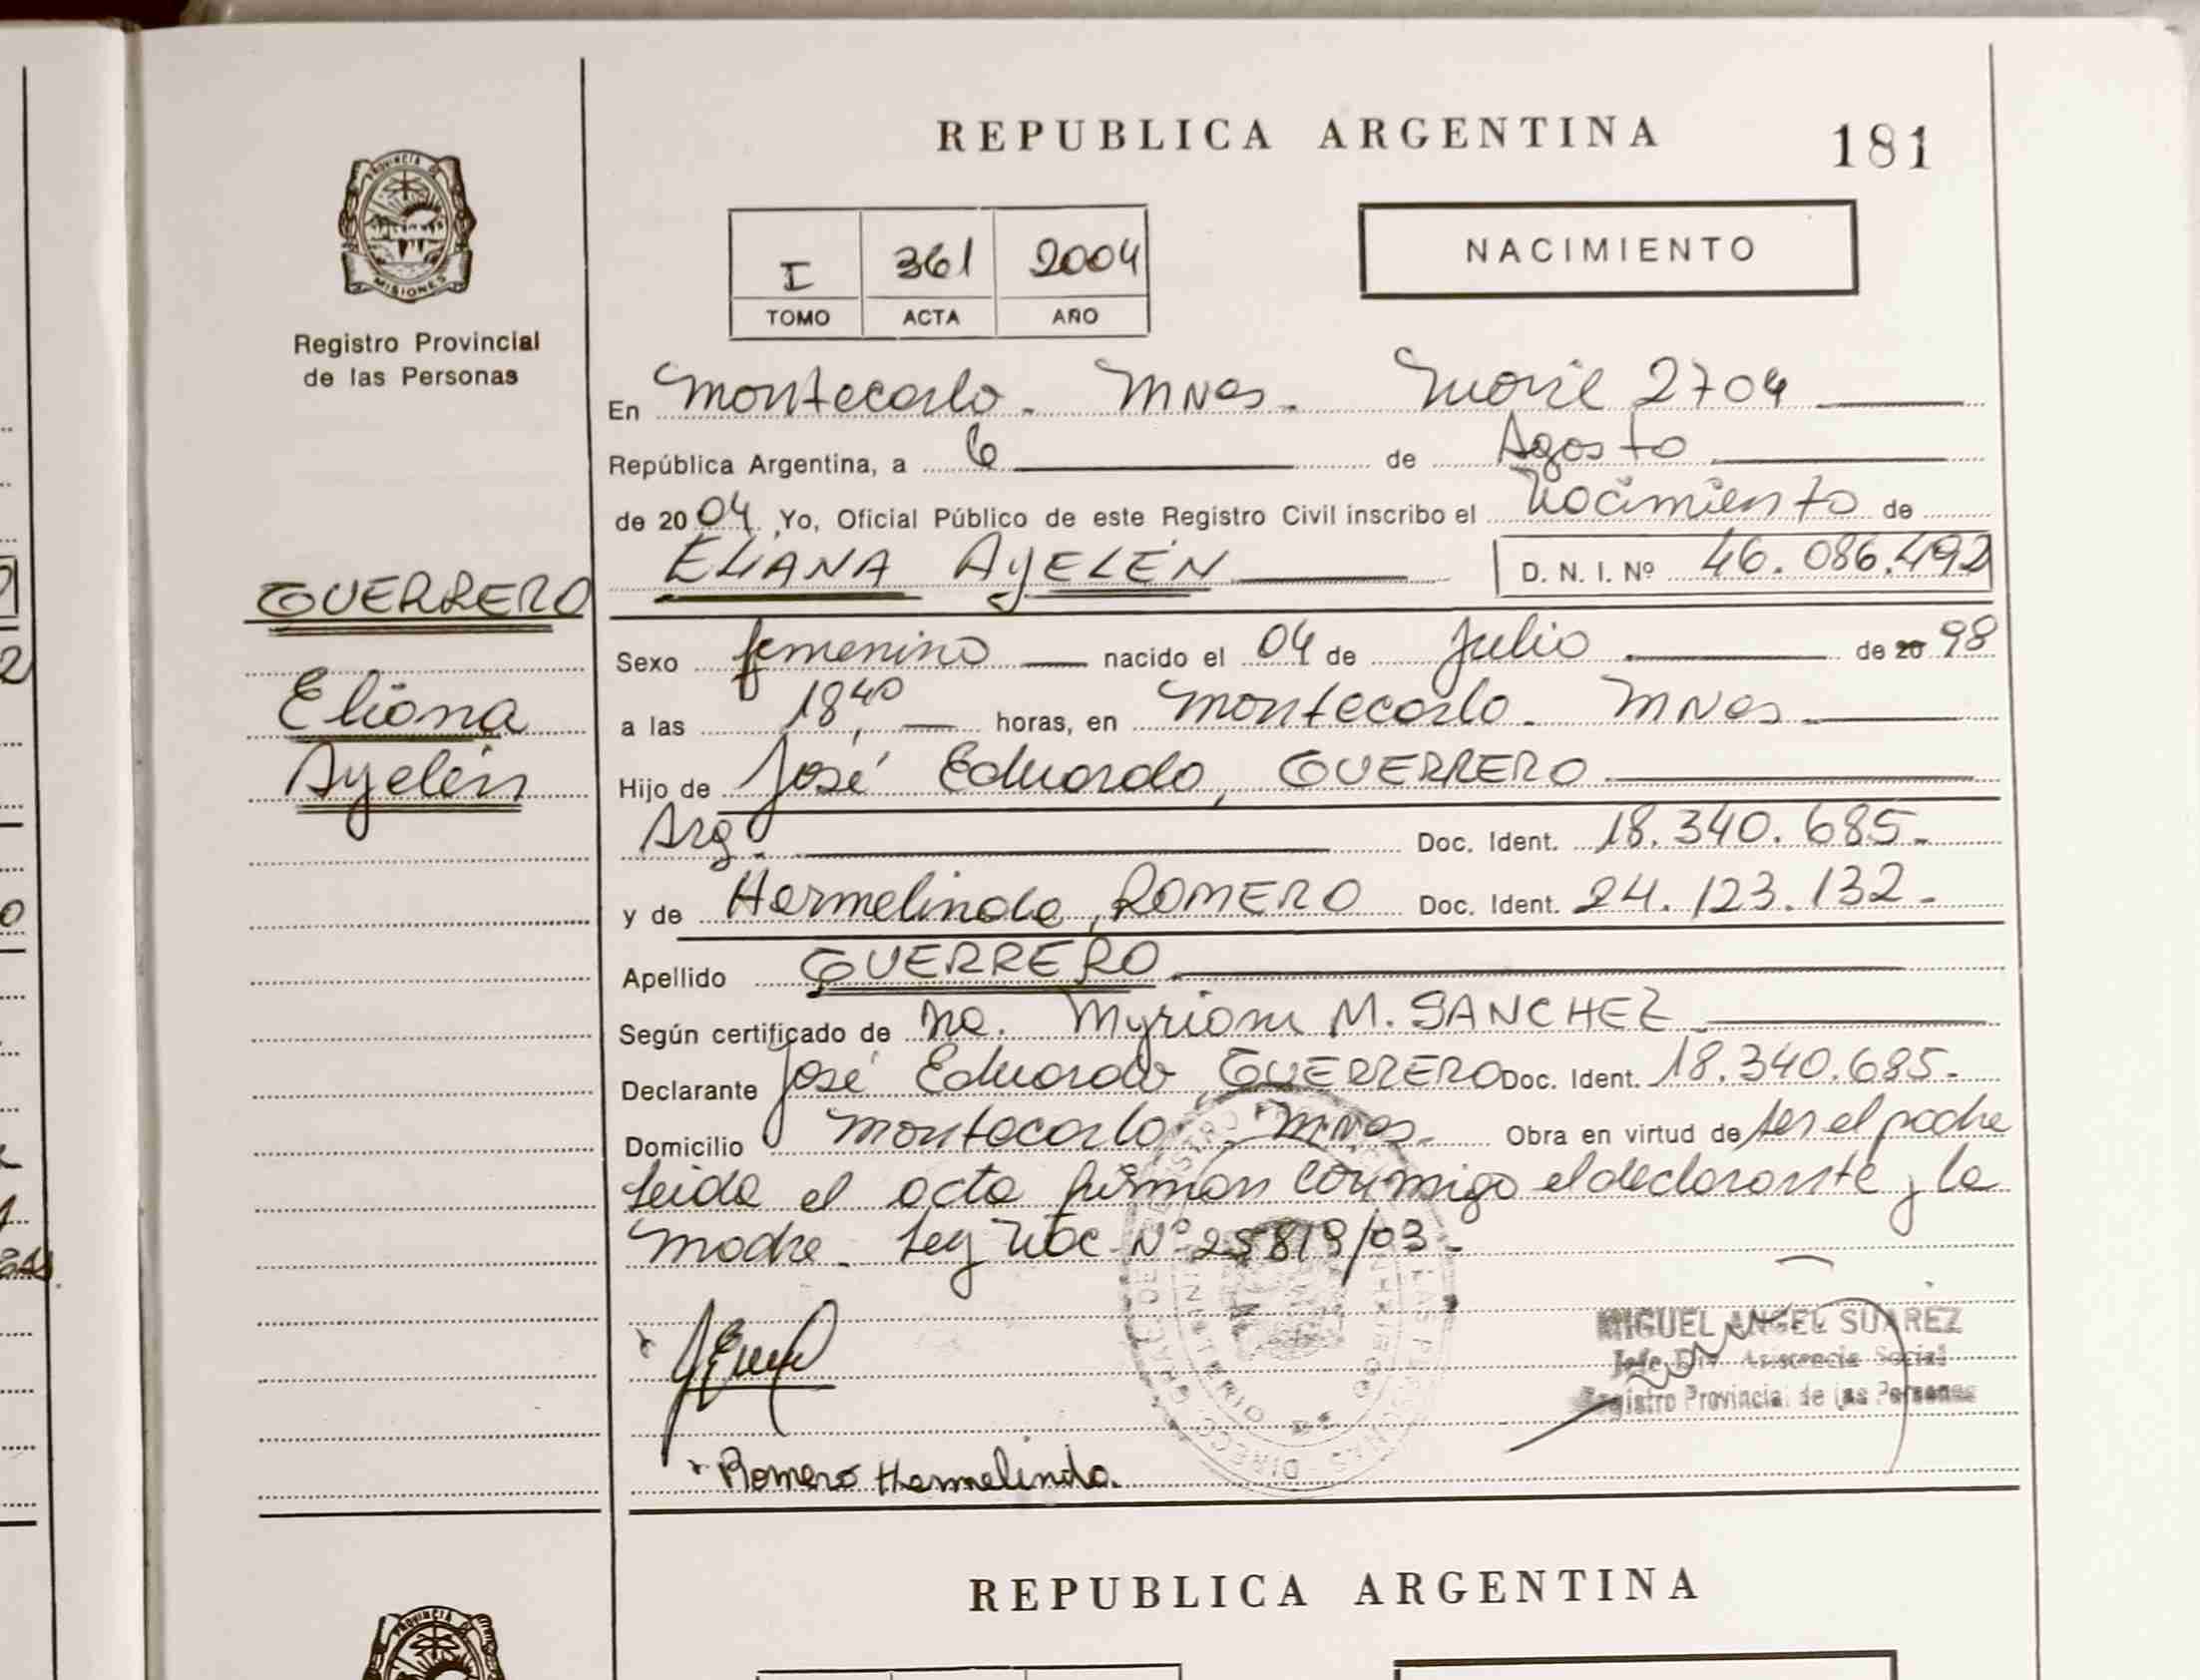 REPUBLICA ARGENTINA
181
PROVINCIA DE
MISIONES
Registro Provincial
de las Personas
I 361 2004
TOMO ACTA AÑO
NACIMIENTO
En Montecarlo - Mnes. Movil 2704
República Argentina, a 6 de Agosto
de 2004 Yo, Oficial Público de este Registro Civil inscribo el Nacimiento de
ELIANA AYELÉN D. N. I. Nº 46.086.492
GUERRERO
Eliana
Ayelén
Sexo femenino nacido el 04 de Julio de 20 98
a las 18,40 horas, en Montecarlo - Mnes -
Hijo de José Eduardo, GUERRERO
Arg. Doc. Ident. 18.340.685-
y de Hermelinda, ROMERO Doc. Ident. 24.123.132-
Apellido GUERRERO
Según certificado de Myriam M. SANCHEZ
Declarante José Eduardo GUERRERO Doc. Ident. 18.340.685-
Domicilio Montecarlo - Mnes - Obra en virtud de ser el padre
Leida el acta firman conmigo el declarante y la
Madre - Ley Nac Nº 25819/03 -
MIGUEL ANGEL SUAREZ
Jefe Div. Asistencia Social
Registro Provincial de las Personas
Romero Hermelinda.
REPUBLICA ARGENTINA
PROVINCIA